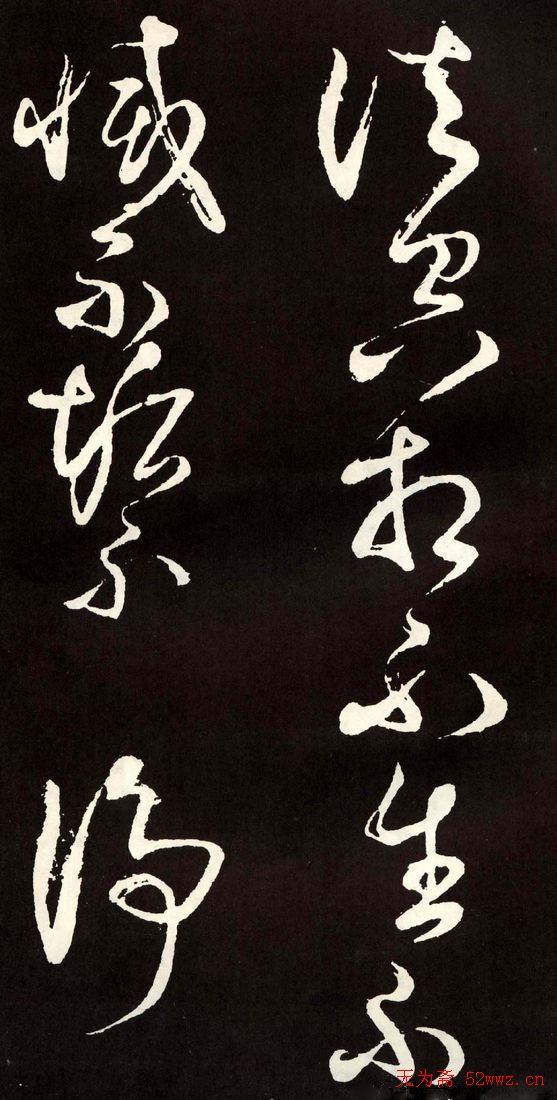 法空相不生不
滅不垢不淨
无为斋 52wwz.cn